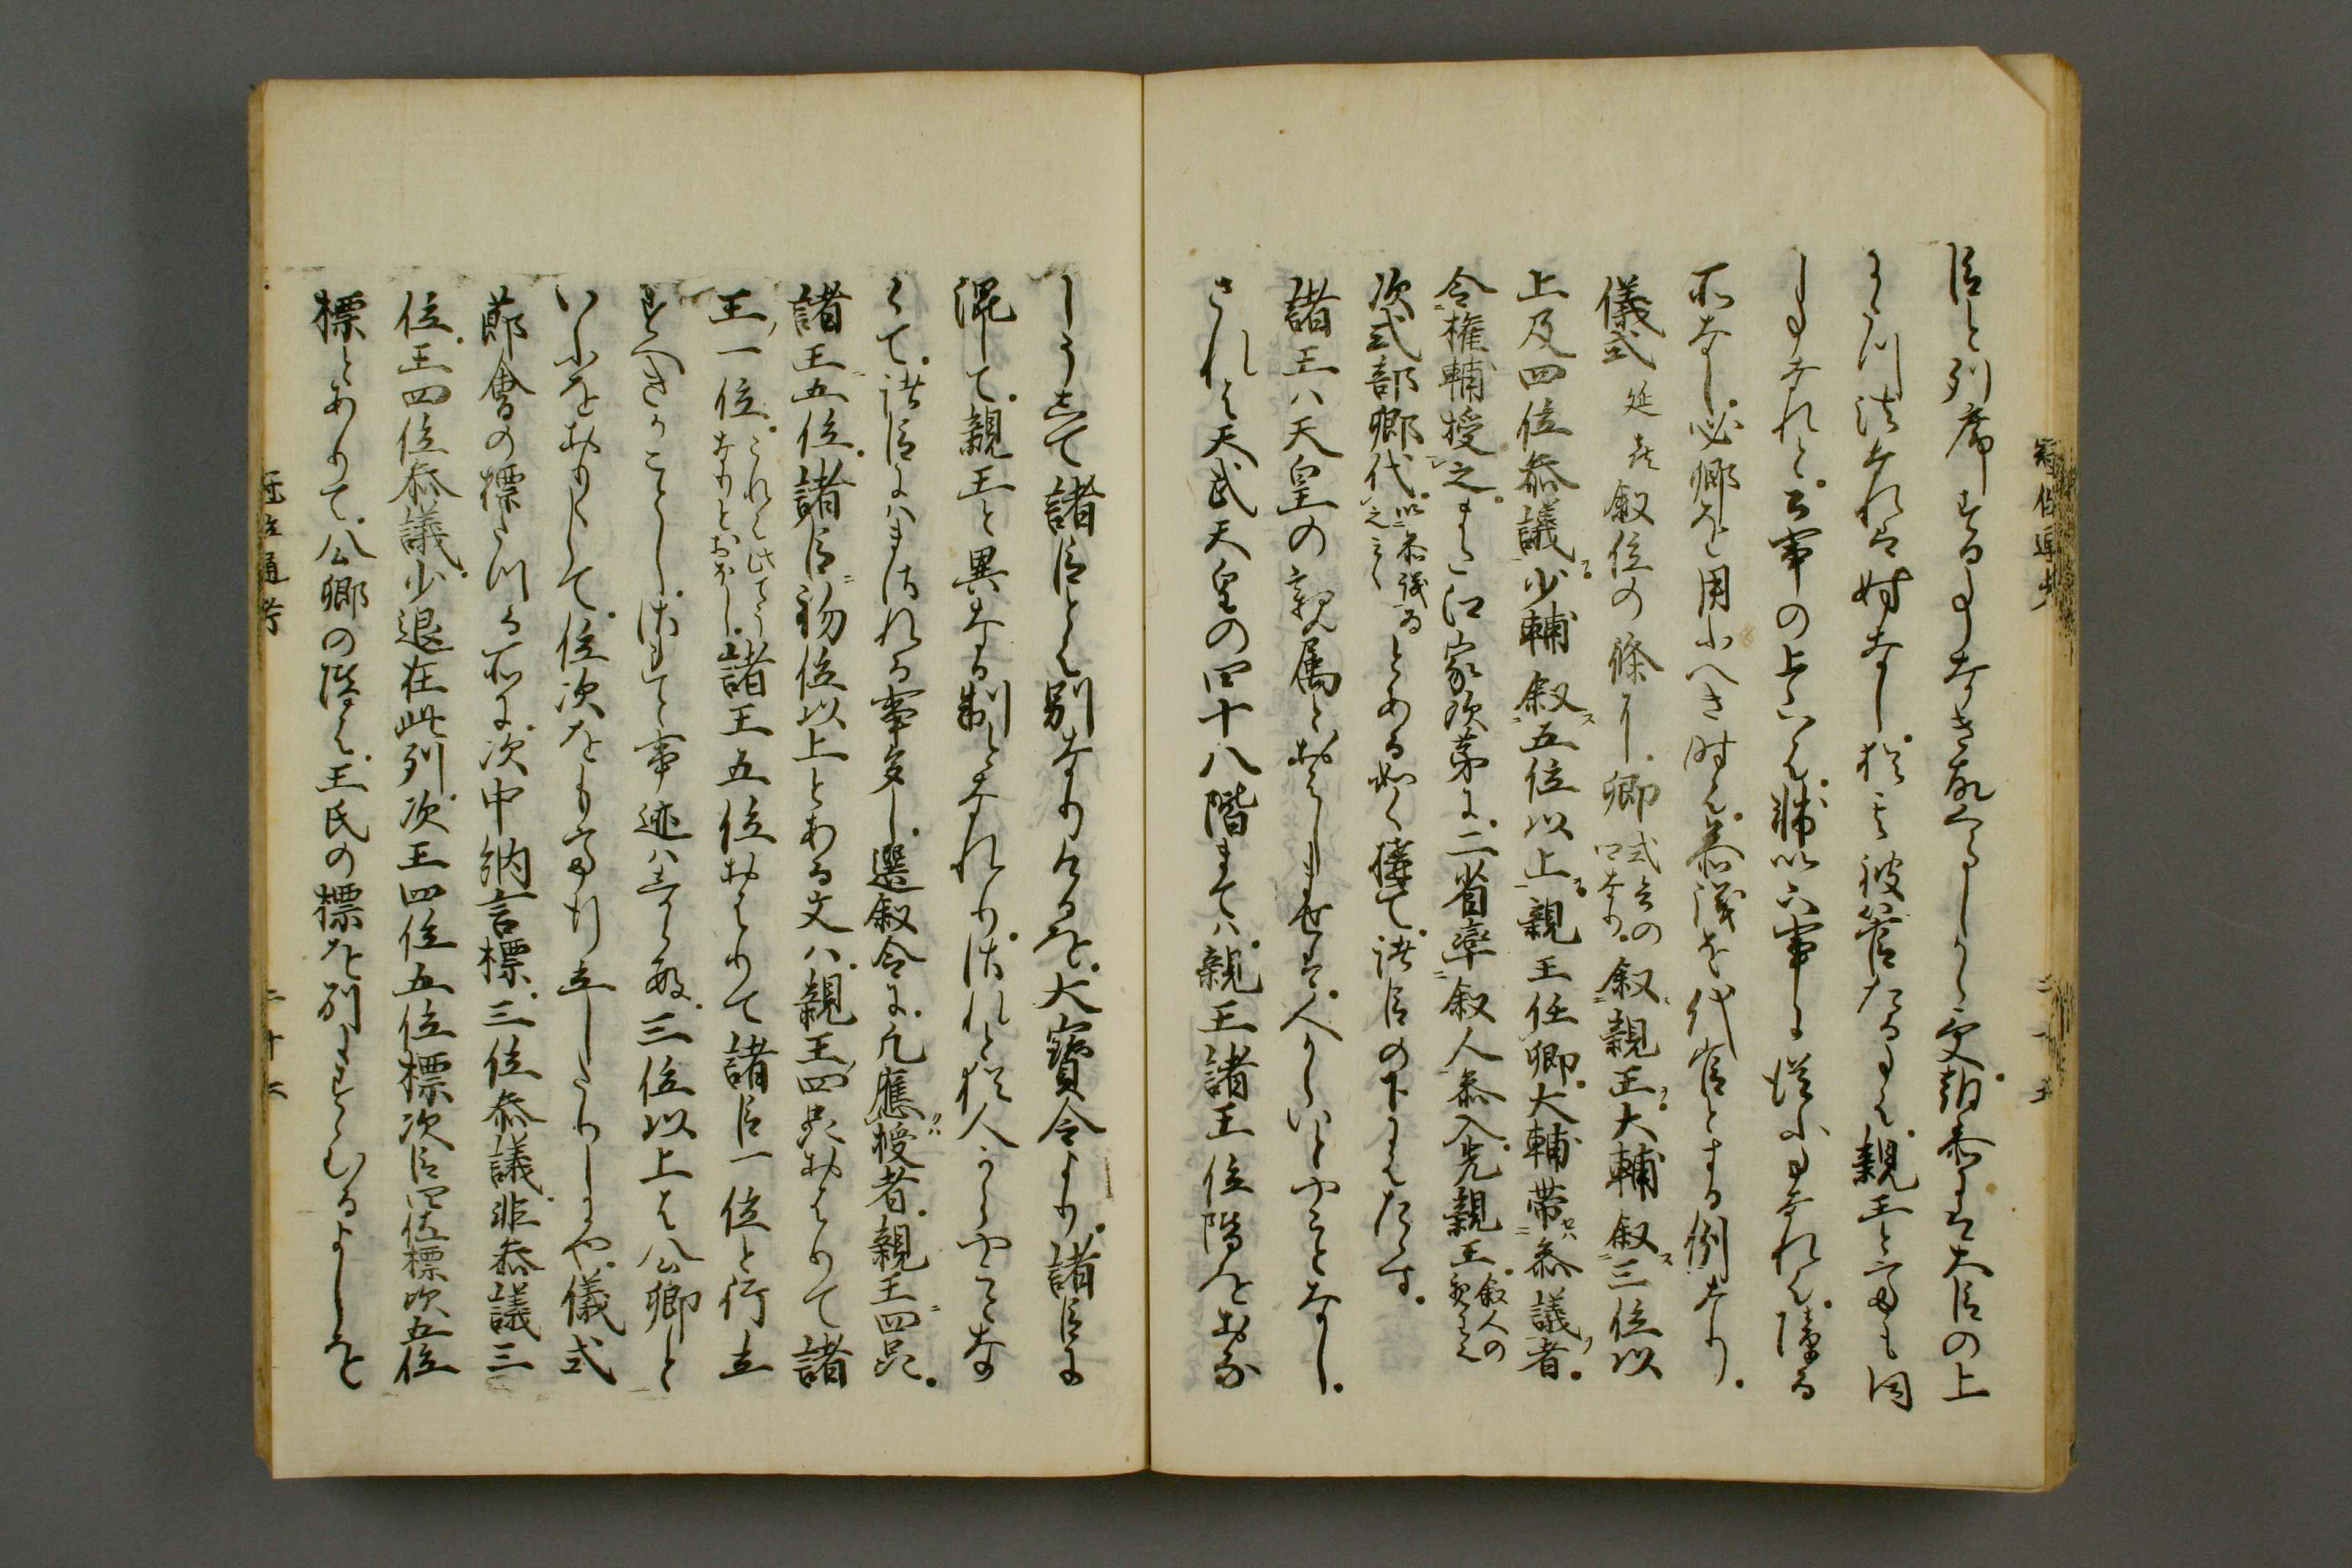 冠位通考 二十五
臣と列席することなき故なるしかく更朝参には大臣の上
にたつ法なれは妨なし猶も被管たるには親王と同しも同
しことなれと公事の上には輔以下事に従ふことなれは障る
所なし必卿を用ふへき時は参議を代官とする例なり
儀式 延喜 叙位の條に卿 式兵の二口なり 叙親王大輔叙三位以
上及四位参議少輔叙五位以上親王任卿大輔帯参議者
令権輔授之また江家次第に二省率叙人参入先親王 叙人の親王
次式部卿代 以参議為之云々 とある如く接て諸臣の下にはたゝす
諸王ハ天皇の親属とおはしませは人からいとやことなし
されは天武天皇の四十八階まてハ親王諸王位階をおな
しうして諸臣とは別なりけるを大寳令より諸臣に
混して親王と異なる制となれりされと猶人からやことな
くて諸臣にハまされる事多し選叙令に凡應授者親王四品
諸王五位諸臣初位以上とある文ハ親王四品おはりて諸
王一位 これは此てうなりとおほし 諸王五位おはりて諸臣一位と行立
すへきかことしされと事迹ハしからす三位以上は公卿と
いふをおもくして位次をもて行立したりしにや儀式
節會の標たつる所に次中納言標三位参議非参議三
位王四位参議少退在此列次王四位五位標次臣四位標次五位
標とありて公卿の階は王氏の標を列にすゝむるよしを
冠位通考 二十六